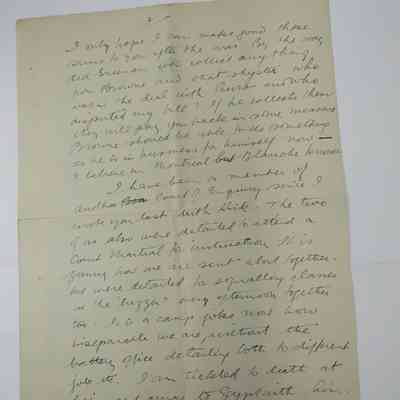 2.
I only hope I can make good these
sums to you after the war. By the way
did Sveeman ever collect anything
from Browne and that shyster who
was in the deal with Pearson and who
disputed my bill? If he collects then
they will pay you back in some measure
Browne should be able to do something
as he is in business for himself now
I believe in Montreal but Blanche knows
I have been a member of
another Court of Enquiry since I
wrote you last with Dick. The two
of us also were detailed to attend a
Court Martial for instruction. It is
funny how we are sent about together.
We were detailed to signalling classes
on "the buzzer" every afternoon together
too. It is a camp joke now how
inseparable we are, without the
battery office detailing both to different
jobs etc. I am tickled to death at